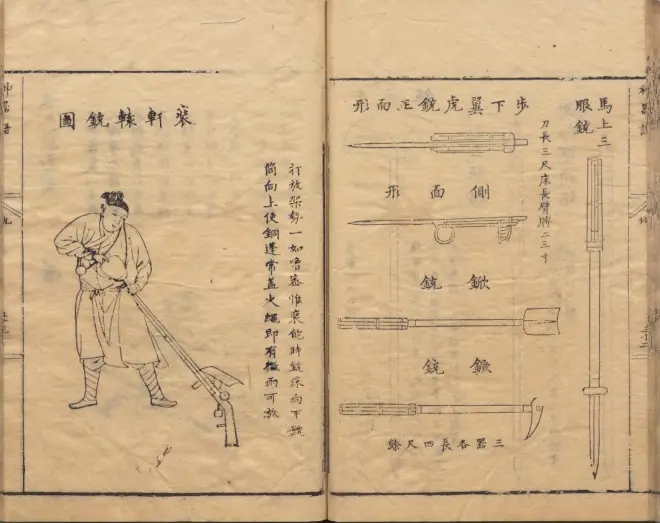 神器譜
馬上三
眼銃
刀長三尺床長臂膊二三寸
步下翼虎銃正面形
側面形
鍁銃
鐝銃
三器各長四尺餘
打放架勢一如嚕密惟裝飽時銃床向下銃
筒向上使銅蓬常蓋火繩即有微雨可放
裝軒轅銃圖
神器譜